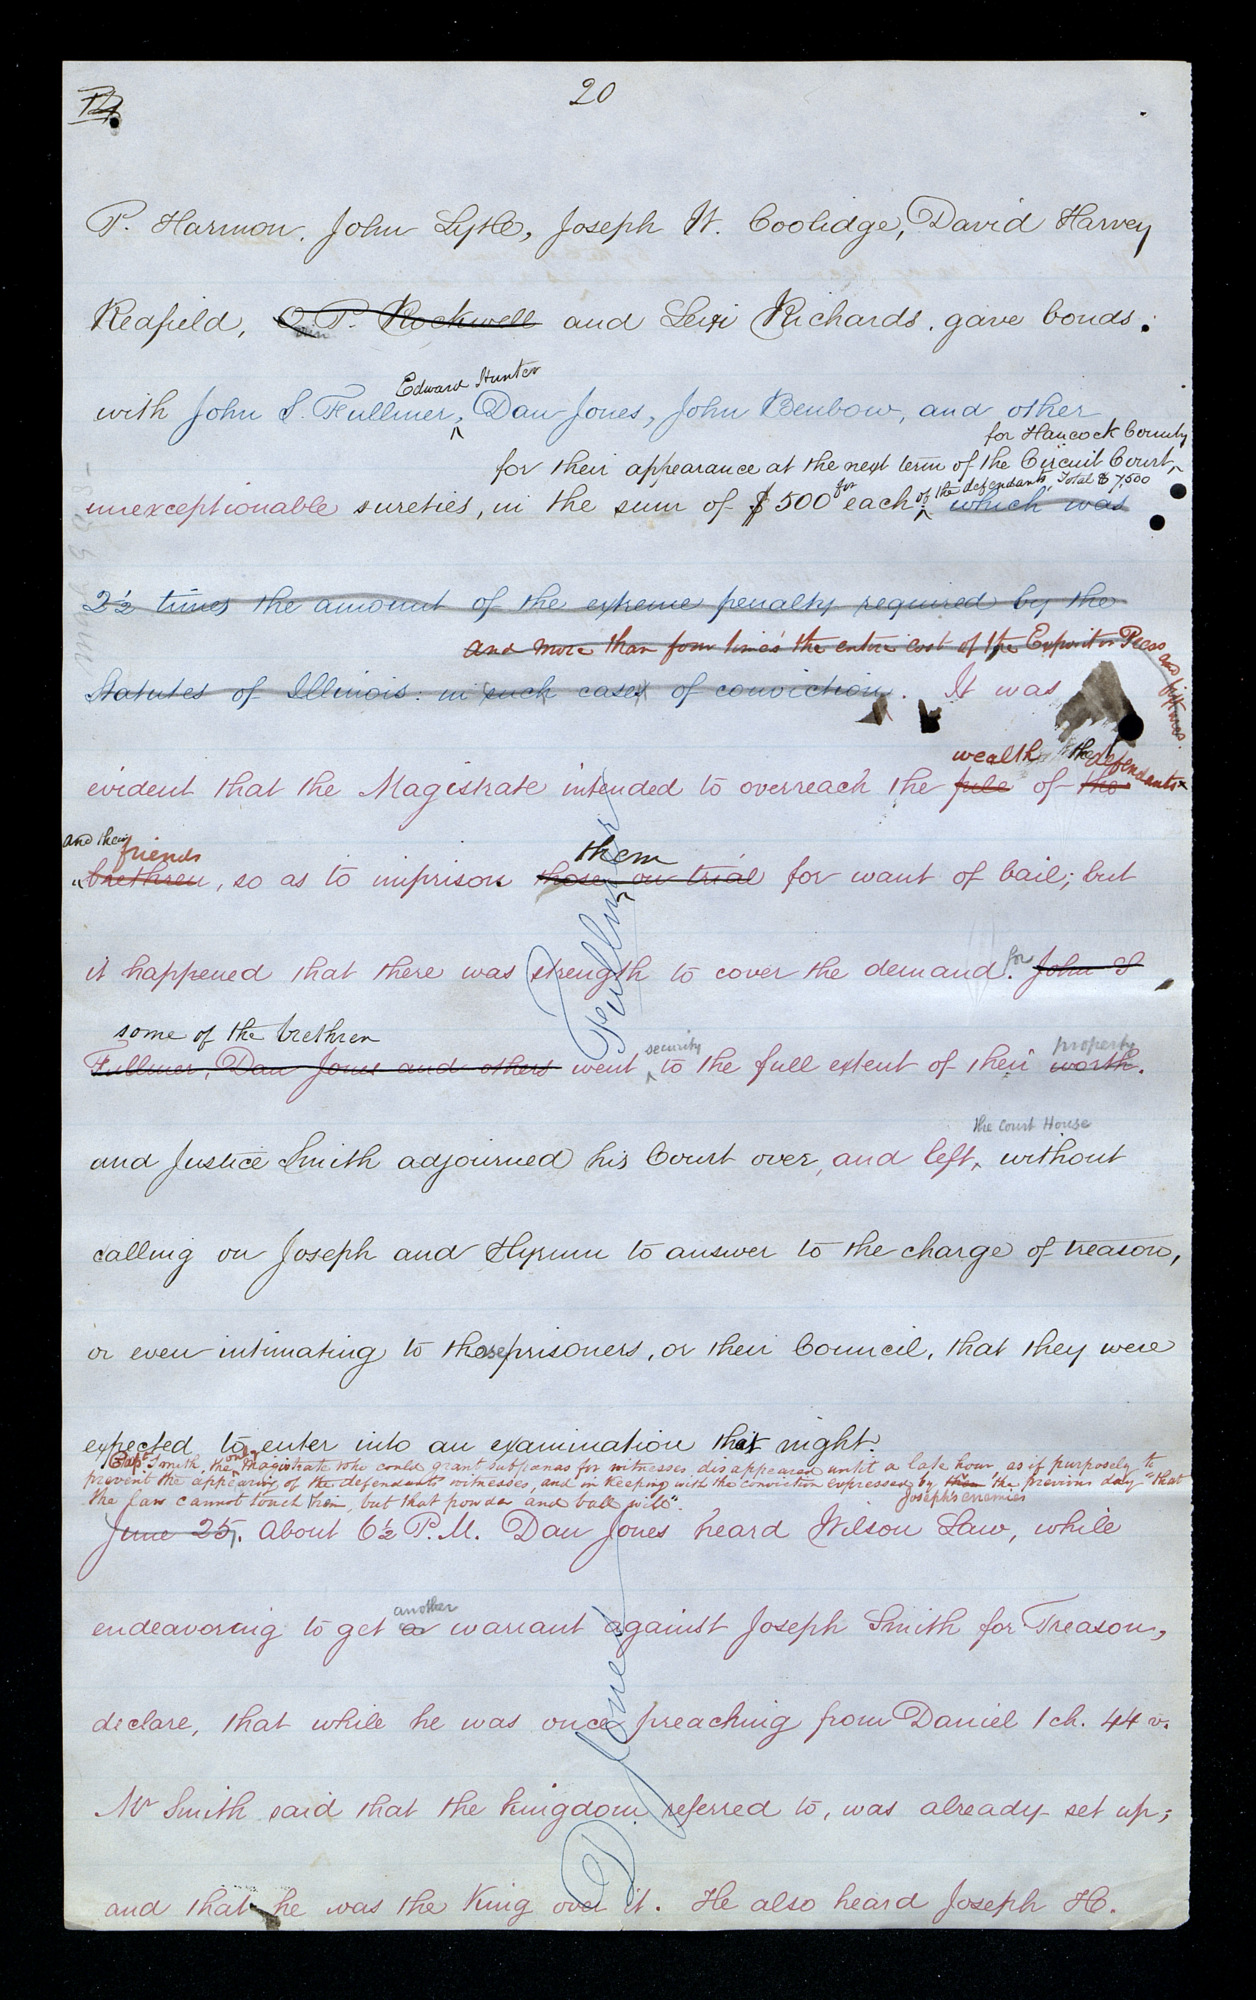 20
P. Harmon, John Lytle, Joseph W. Coolidge, David Harvey
Redfield, O. P. Rockwell and Levi Richards, gave bonds.
Edward Hunter
with John S. Fullmer, Dan Jones, John Benbow, and other
for Hancock County
for their appearance at the next term of the Circuit Court,
for of the defendants, Total $7,500
unexceptionable sureties, in the sum of $500 each. which was
2½ times the amount of the extreme penalty required by the
and more than four times the entire cost of the Expositor Press and fixtures.
Statutes of Illinois: in such cases of conviction. It was
wealth the defendants
evident that the Magistrate intended to overreach the pile of the
and their friends them
brethren, so as to imprison those on trial for want of bail; but
it happened that there was strength to cover the demand. for John S
some of the brethren security property
Fullmer, Dan Jones and others went to the full extent of their worth.
the Court House
and Justice Smith adjourned his Court over, and left, without
calling on Joseph and Hyrum to answer to the charge of treason,
or even intimating to those prisoners, or their Council, that they were
expected to enter into an examination that night.
Capt. Smith, the only Magistrate who could grant subpœnas for witnesses disappeared until a late hour as if purposely to
prevent the appearing of the defendants' witnesses, and in keeping with the conviction expressed by them the previous day "that
Joseph's enemies
the law cannot touch them, but that powder and ball will".
June 25. About 6½ P.M. Dan Jones heard Wilson Law, while
another
endeavoring to get a warrant against Joseph Smith for Treason,
declare, that while he was once preaching from Daniel 1 ch. 44 v.
Mr Smith said that the kingdom referred to, was already set up;
and that he was the King over it. He also heard Joseph H.
Fullmer
D Jones